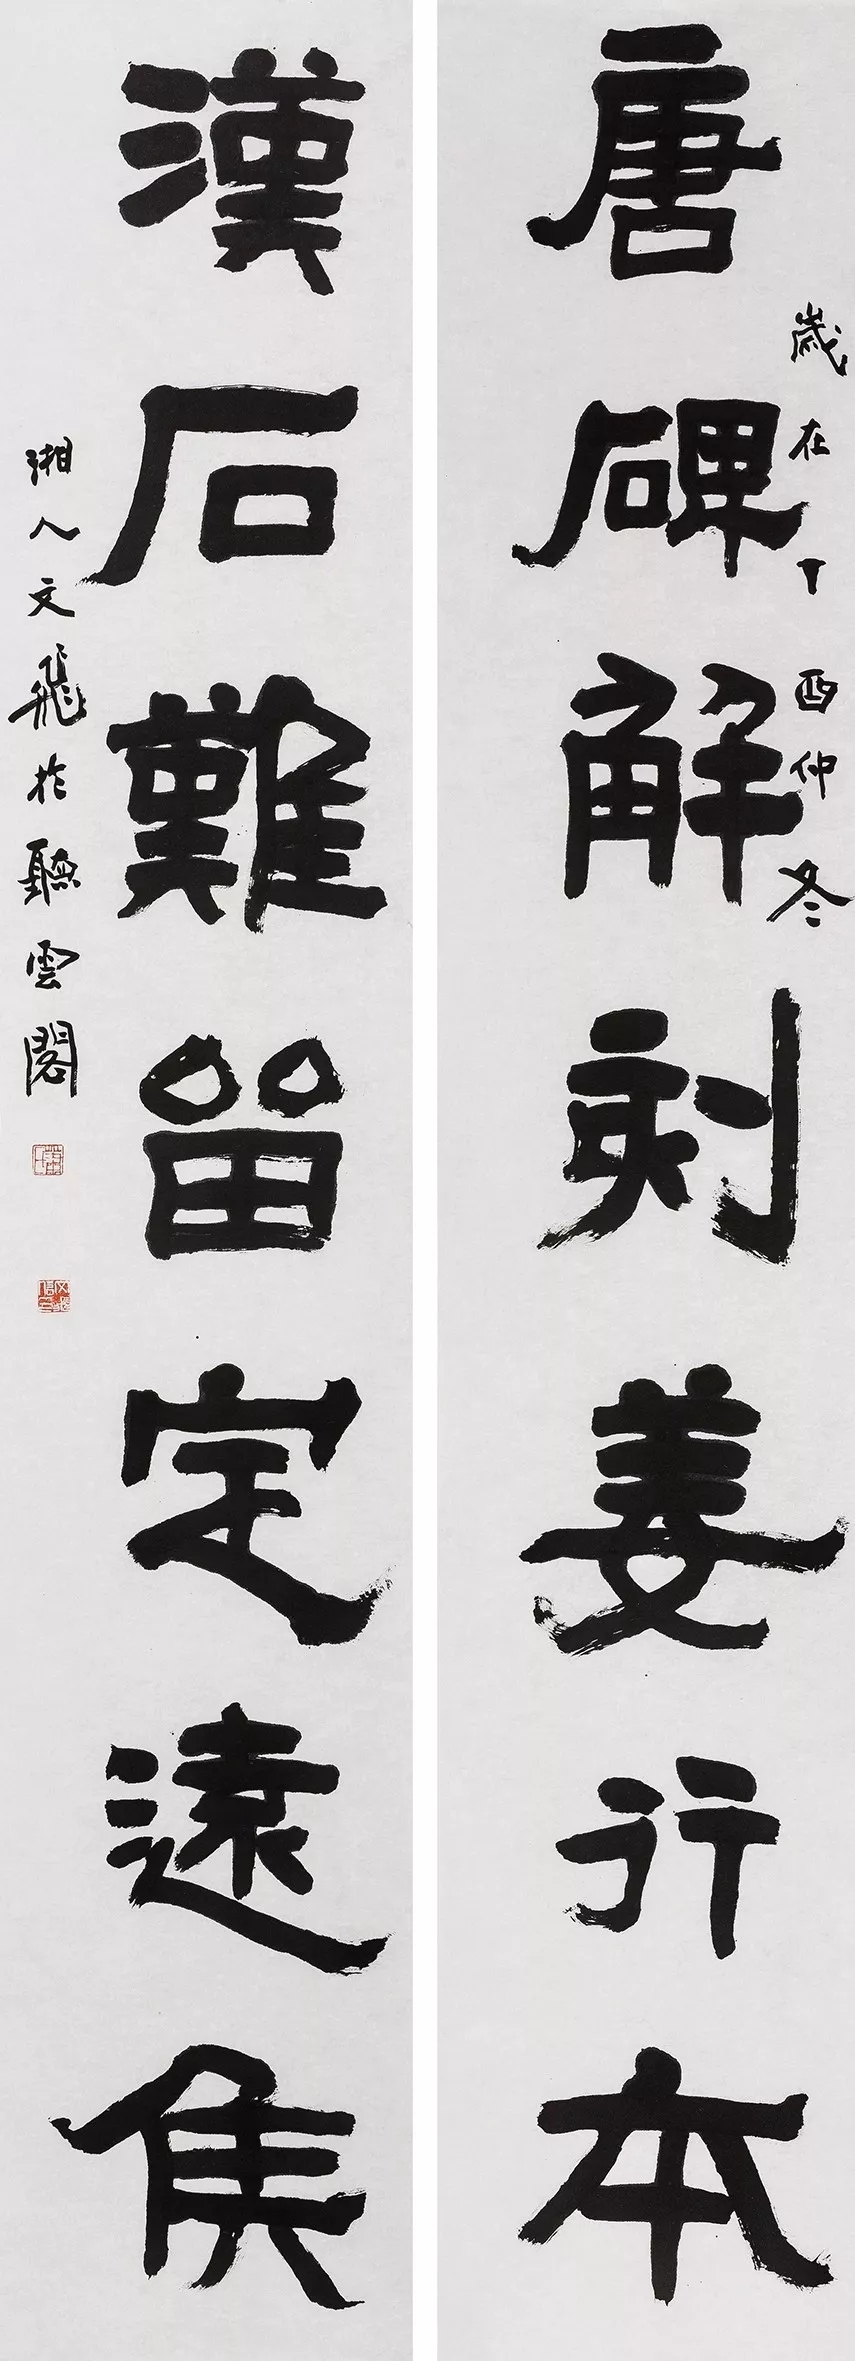 唐碑解刻姜行本
歲在丁酉仲冬
漢石難留定遠侯
湘人文飛於聽雲閣